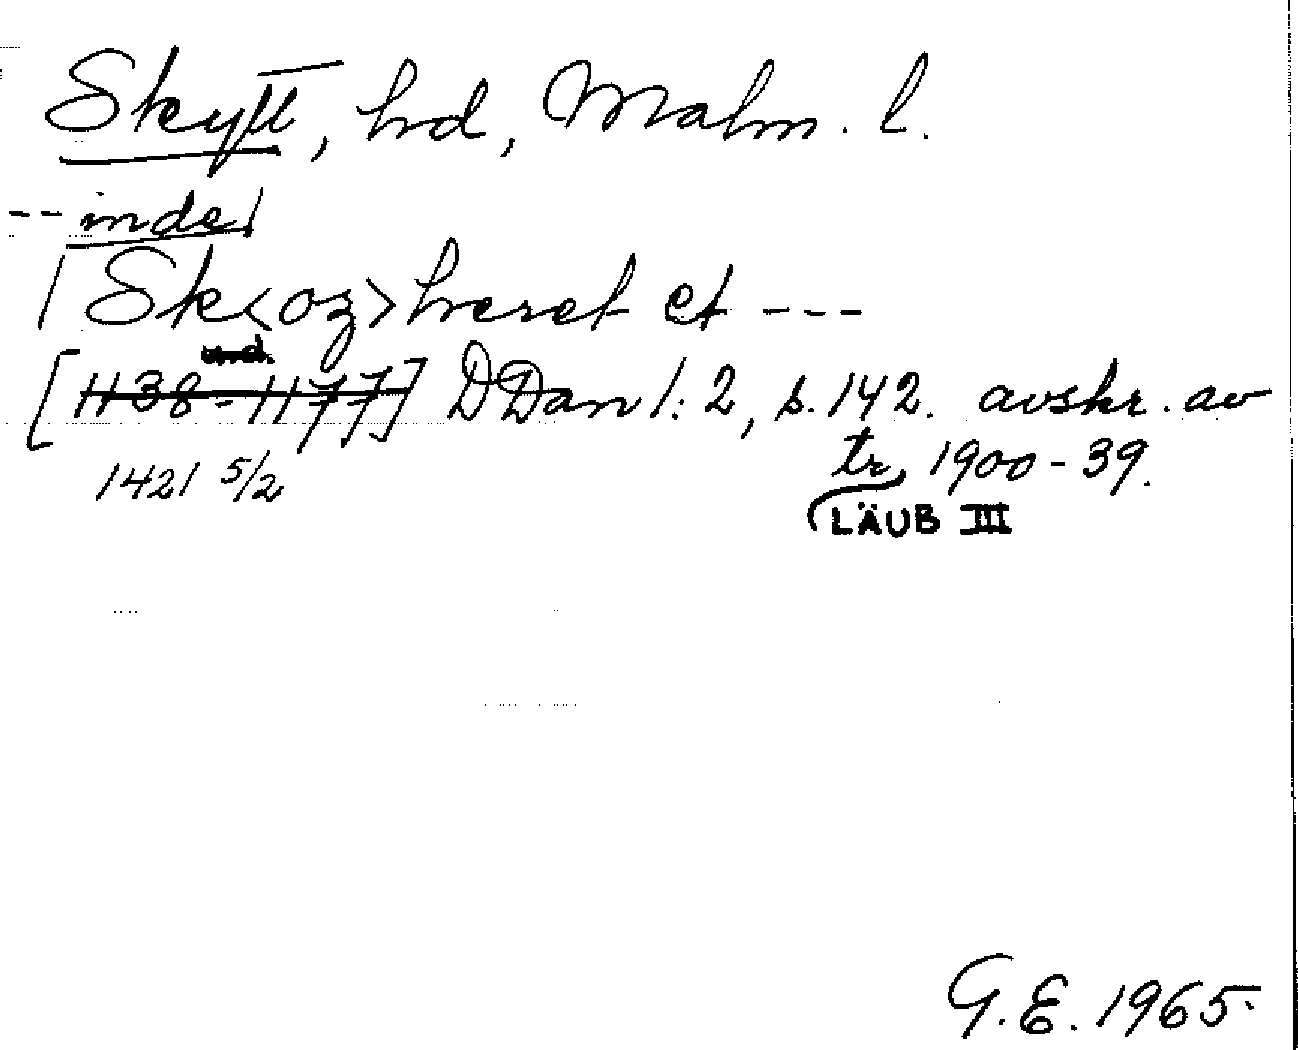 Skytt, hd, Malm. l.
-- inde/
/ Sk<oz>heret et ---
und.
[1138-1177] DDan 1:2, s. 142. avskr. av
1421 5/2 tr. 1900-39.
LÄUB III
G.E. 1965.